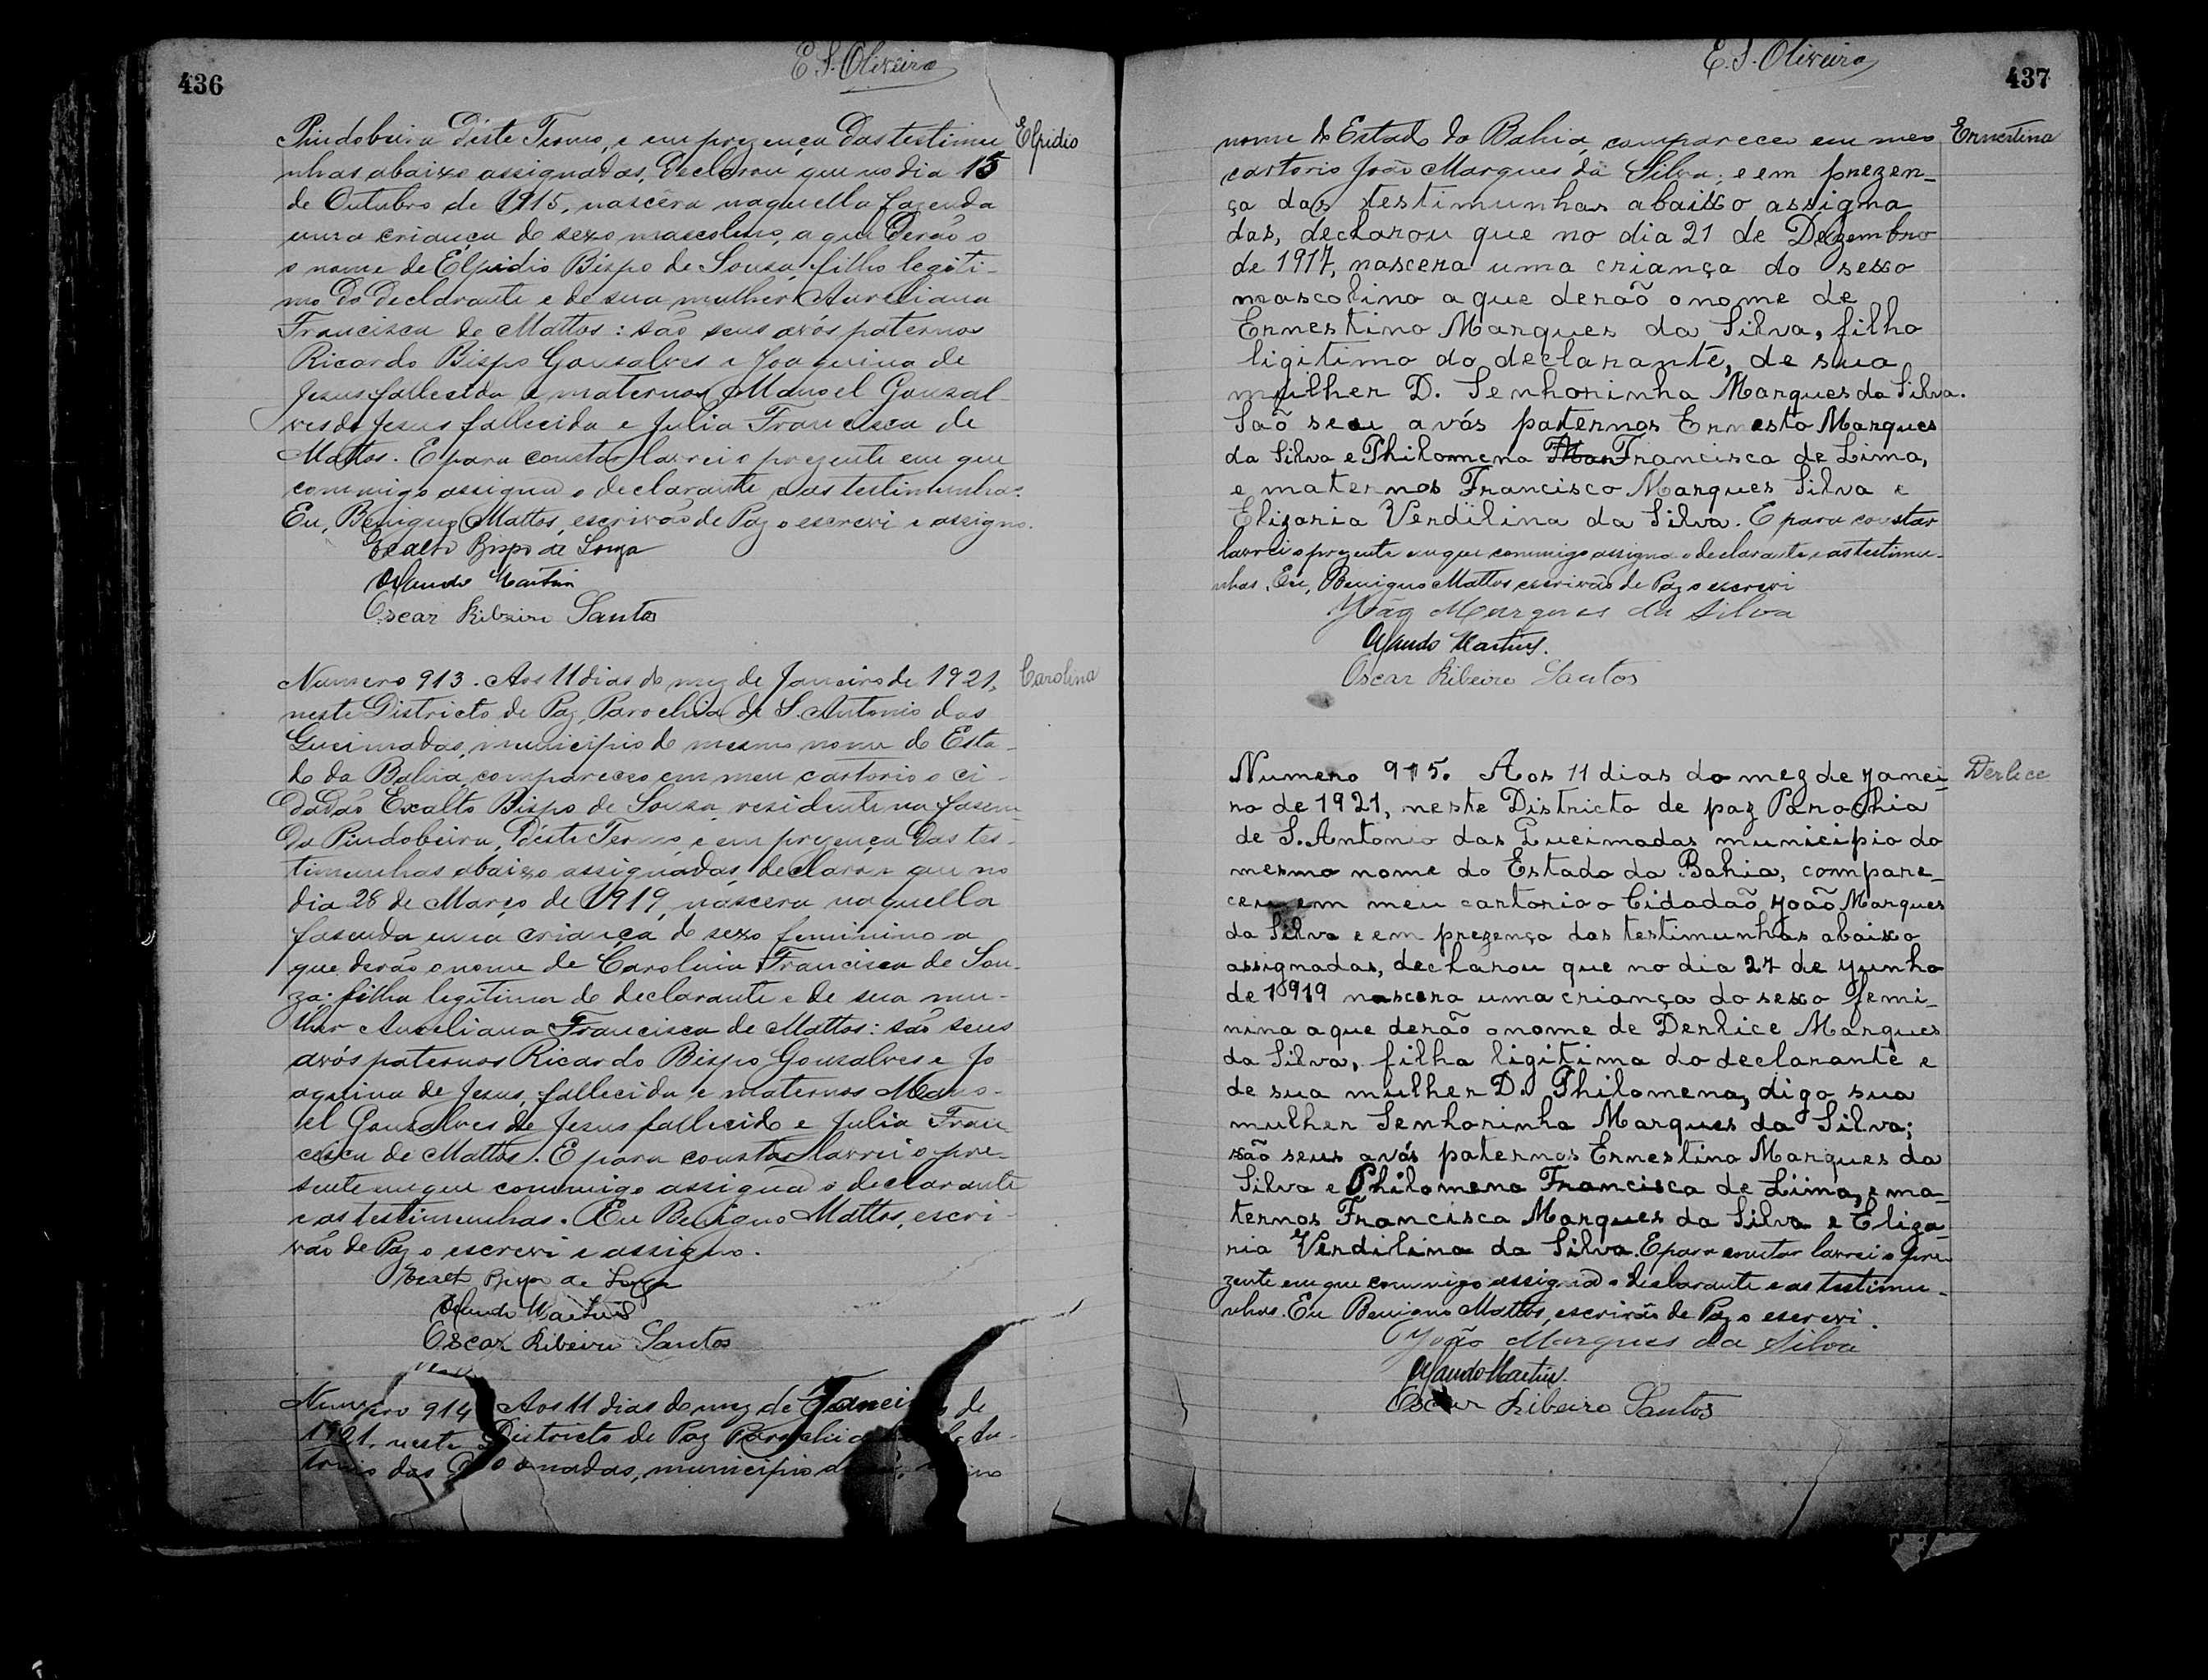 436
E. S. Oliveira
Pindobeira déste Termo, e em prezença das testimu
Elpidio
nhas abaixo assignadas, declarou que no dia 15
de Outubro de 1915, nascêra naquella fazenda
uma criança do sexo mascolino, a que derão o
o nome de Elpidio Bispo de Sousa, filho legiti-
mo do declarante e de sua mulher Aureliana
Francisca de Mattos: são seus avós paternos
Ricardo Bispo Gonsalves e Joaquina de
Jesus fallecida e maternos Manoel Gonsal-
ves de Jesus fallecido e Julia Francisca de
Mattos. E para constar lavrei o prezente em que
commigo assigna o declarante e as testimunhas.
Eu, Benigno Mattos, escrivão de Paz o escrevi e assigno.
Exalto Bispo de Souza
Orlando Martins
Oscar Ribeiro Santos
Numero 913. Aos 11 dias do mez de Janeiro de 1921,
Carolina
neste Districto de Paz, Parochia de S. Antonio das
Queimadas, municipio do mesmo nome do Esta-
do da Bahia, compareceo em meu cartorio o ci-
dadão Exalto Bispo de Sousa, residente na fasen-
da Pindobeira, déste Termo, e em prezença das tes-
timunhas abaixo assignadas, declarou que no
dia 28 de Março de 1919, nascera naquella
fasenda uma criança do sexo feminino a
que derão o nome de Carolina Francisca de Sou-
za: filha legitima do declarante e de sua mu-
lher Aureliana Francisca de Mattos: são seus
avós paternos Ricardo Bispo Gonsalves e Jo
aquina de Jesus, fallecida e maternos Mano-
el Gonsalves de Jesus fallecido e Julia Fran
cisca de Mattos. E para constar lavrei o pre-
sente em que commigo assigna o declarante
e as testimunhas. Eu Benigno Mattos, escri-
vão de Paz o escrevi e assigno.
Exalto Bispo de Souza
Orlando Martins
Oscar Ribeiro Santos
Numero 914 Aos 11 dias do mez de Janeiro de
1921, neste Districto de Paz Parochia de S. An-
tonio das Queimadas, municipio do mesmo
E. S. Oliveira
437
nome do Estado da Bahia, compareceu em meo
Ernestina
cartorio João Marques da Silva; e em prezen-
ça das testimunhas abaixo assigna
das, declarou que no dia 21 de Dezembro
de 1917, nascera uma criança do sexo
mascolino a que derão o nome de
Ernestino Marques da Silva, filho
ligitimo do declarante, de sua
mulher D. Senhorinha Marques da Silva.
São seus avós paternos Ernesto Marques
da Silva e Philomena Man Francisca de Lima,
e maternos Francisco Marques Silva e
Elizaria Verdilina da Silva. E para constar
lavrei o prezente em que commigo assigna o declarante e as testimu-
nhas. Eu, Benigno Mattos escrivão de Paz o escrevi
João Marques da Silva
Orlando Martins.
Oscar Ribeiro Santos
Numero 915. Aos 11 dias do mez de Janei-
Derlice
ro de 1921, neste Districto de paz Parochia
de S. Antonio das Queimadas municipio do
mesmo nome do Estado da Bahia, compare-
ceu em meu cartorio o Cidadão João Marques
da Silva e em prezença das testimunhas abaixo
assignadas, declarou que no dia 27 de Junho
de 1919 nascera uma criança do sexo femi-
nina a que derão o nome de Derlice Marques
da Silva, filha ligitima do declarante e
de sua mulher D. Philomena, digo sua
mulher Senhorinha Marques da Silva;
são seus avós paternos Ernestino Marques da
Silva e Philomena Francisca de Lima, e ma-
ternos Francisca Marques da Silva e Eliza-
ria Verdilina da Silva. E para constar lavrei o pre
zente em que commigo assigna o declarante e as testimu-
nhas. Eu Benigno Mattos, escrivão de Paz o escrevi.
João Marques da Silva
Orlando Martins.
Oscar Ribeiro Santos